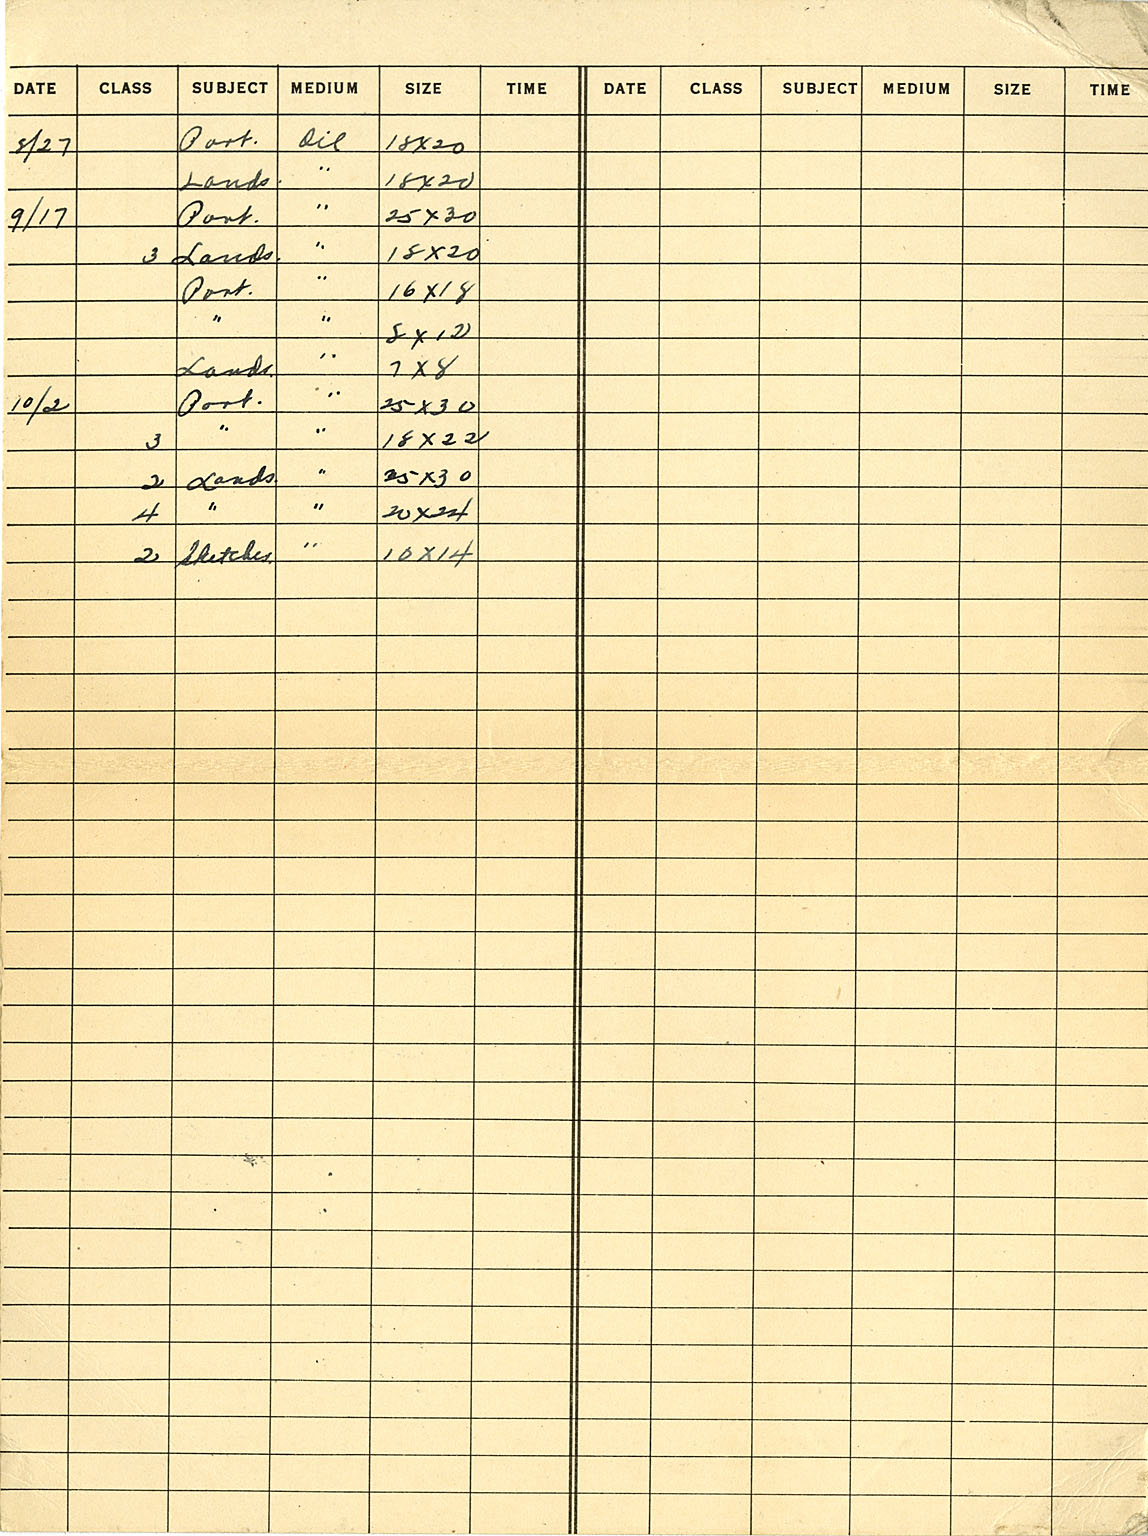 DATE CLASS SUBJECT MEDIUM SIZE TIME DATE CLASS SUBJECT MEDIUM SIZE TIME
8/27 Port. Oil 18X20
Lands. " 18X20
9/17 Port. " 25X30
3 Lands. " 18X20
Port. " 16X18
" " 8X12
Lands. " 7X8
10/2 Port. " 25X30
3 " " 18X22
2 Lands. " 25X30
4 " " 20X24
2 Sketches. " 10X14